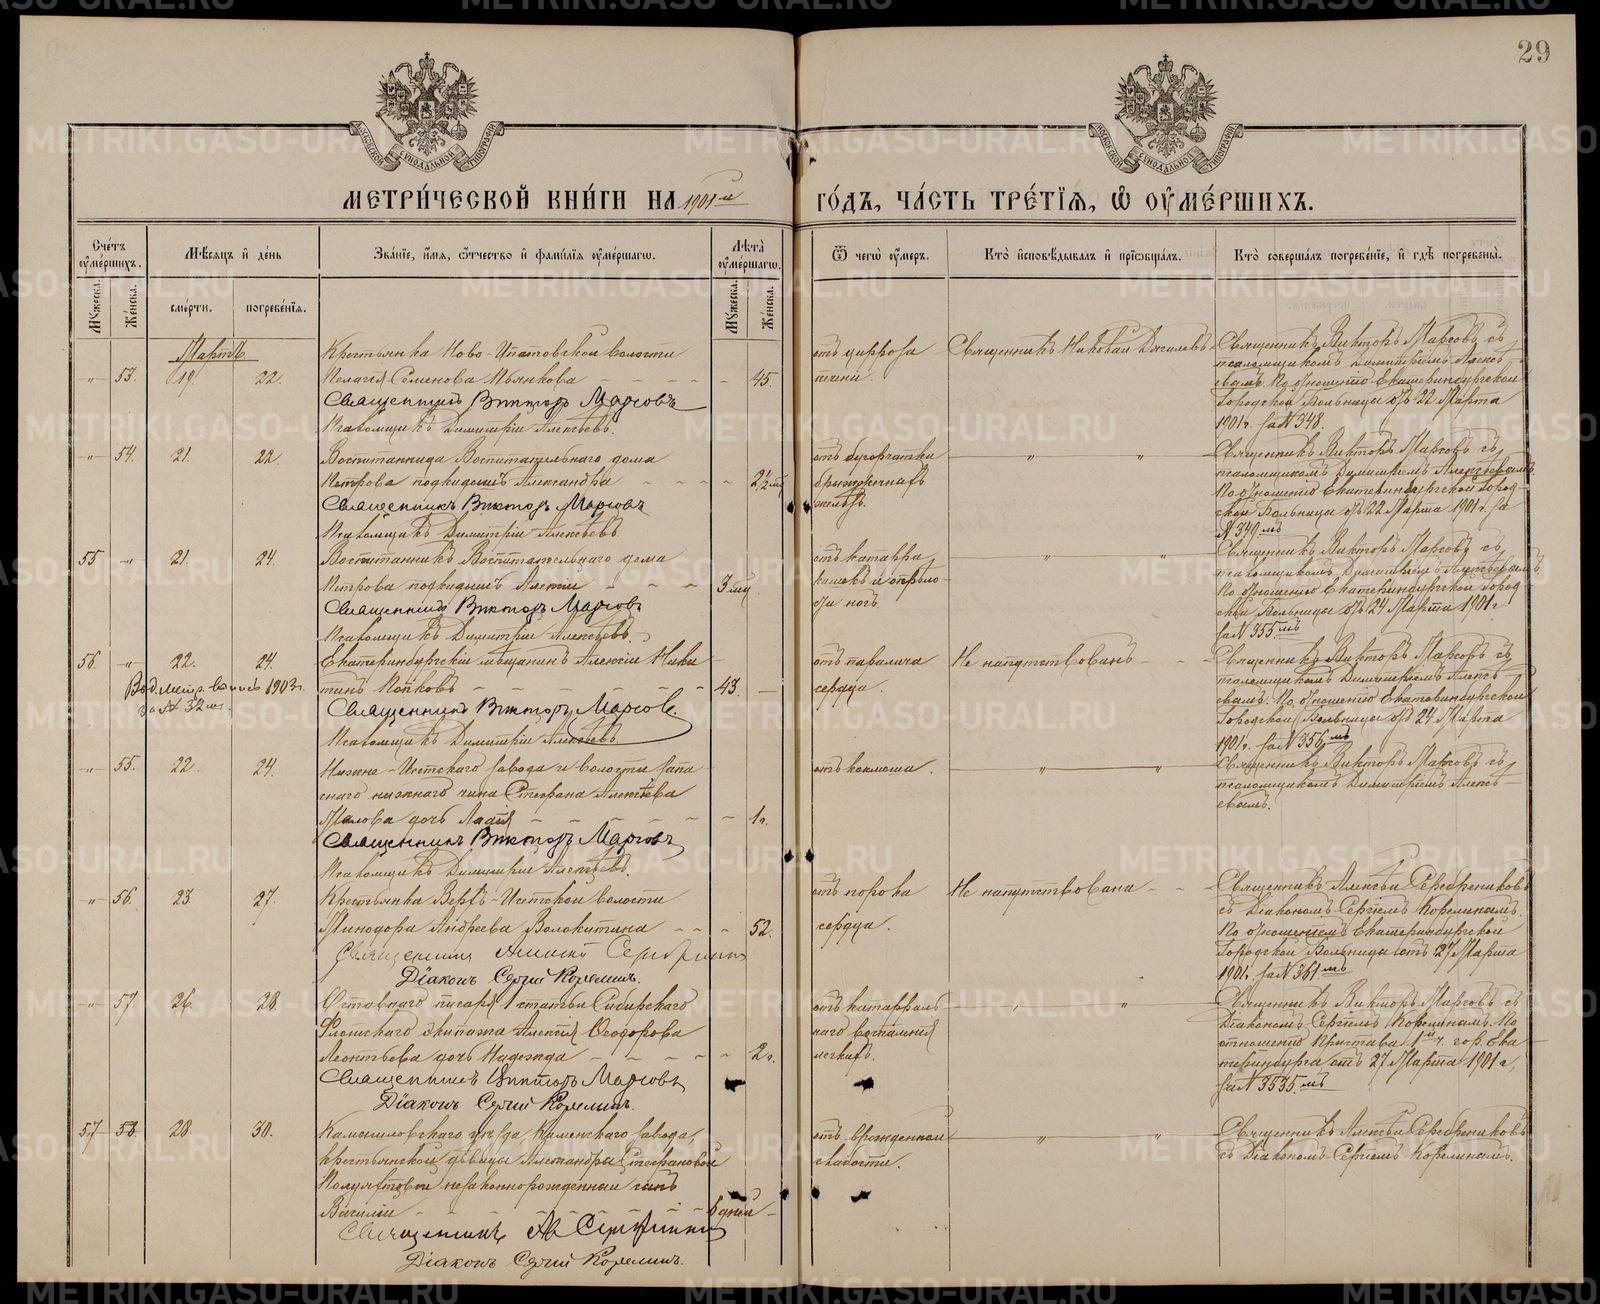 29
МЕТРИ́ЧЕСКОЙ КНИ́ГИ НА 1901й ГО́ДЪ, ЧА́СТЬ ТРЕ́ТІЯ, Ѡ ОУМЕ́РШИХЪ.
Сче́тъ оуме́ршихъ.
Мѣ́сяцъ и҆ де́нь
Зва́ніе, и҆́мя, ѻ҆́тчество и҆ фами́лія оуме́ршагѡ.
Лѣ́та оуме́ршагѡ.
Ѿ чегѡ̀ оу́меръ.
Кто̀ и҆сповѣ́дывалъ и҆ прїѡбща́лъ.
Кто̀ соверша́лъ погребе́нїе, и҆ гдѣ̀ погребены̀.
Му́жеска.
Же́нска.
сме́рти.
погребе́нїя.
Му́жеска.
Же́нска.
Мартъ
53. 19. 22.
Крестьянка Ново-Ипатовской волости
Пелагія Семенова Пьянкова 45.
Священникъ Викторъ Марсовъ
Псаломщикъ Димитрій Алексѣевъ.
отъ цирроза
печени.
Священникъ Николай
Священникъ Викторъ Марсовъ съ
псаломщикомъ Димитріемъ Алексѣ-
евымъ. По отношенію Екатеринбургской
Городской Больницы отъ 22 Марта
1901 г. за № 348.
54. 21. 22.
Воспитанница Воспитательнаго дома
Петрова подкидышъ Александра 2½ мѣ
Священникъ Викторъ Марсовъ
Псаломщикъ Димитрій Алексѣевъ.
отъ бугорчатки
брыжеечныхъ
желѣзъ.
Священникъ Викторъ Марсовъ съ
псаломщикомъ Димитріемъ Алексѣевымъ
По отношенію Екатеринбургской Город-
ской Больницы отъ 22 Марта 1901 г. за
№ 349мъ
55 21. 24.
Воспитанникъ Воспитательнаго дома
Петрова подкидышъ Алексій 3 мѣ
Священникъ Викторъ Марсовъ
Псаломщикъ Димитрій Алексѣевъ.
отъ катарра
кишекъ и
ногъ.
Священникъ Викторъ Марсовъ съ
псаломщикомъ Димитріемъ Алексѣевымъ
По отношенію Екатеринбургской Город
ской Больницы отъ 24 Марта 1901 г.
за № 355.мъ
56. 22. 24.
Екатеринбургскій мѣщанинъ Алексій Ники
тинъ Попковъ 43.
Священникъ Викторъ Марсовъ.
Псаломщикъ Димитрій Алексѣевъ.
1903 г.
за № 32
отъ паралича
сердца.
Не напутствованъ
Священникъ Викторъ Марсовъ съ
псаломщикомъ Димитріемъ Алексѣ-
евымъ. По отношенію Екатеринбургской
Городской Больницы отъ 24 Марта
1901 г. за № 356мъ
55. 22. 24.
Нижне-Исетскаго завода и волости запа
снаго нижняго чина Стефана Алексѣева
дочь 1 г.
Священникъ Викторъ Марсовъ
Псаломщикъ Димитрій Алексѣевъ.
отъ коклюша.
Священникъ Викторъ Марсовъ съ
псаломщикомъ Димитріемъ Алексѣ-
евымъ.
56. 23. 27.
Крестьянка Верхъ-Исетской волости
Минодора Андреева Волокитина 52.
Священникъ Алексій Серебренниковъ
Діаконъ Сергій Корелинъ.
отъ порока
сердца.
Не напутствована
Священникъ Алексѣй Серебренниковъ
съ Діакономъ Сергіемъ Корелинымъ.
По отношеніемъ Екатеринбургской
Городской Больницы отъ 27 Марта
1901 г. за № 361мъ
57. 26. 28.
Отставнаго 1 статьи Сибирскаго
Флотскаго экипажа Алексія Ѳеодорова
Леонтьева дочь Надежда 2 г.
Священникъ Викторъ Марсовъ
Діаконъ Сергій Корелинъ.
отъ катарраль
наго воспаленія
легкихъ.
Священникъ Викторъ Марсовъ съ
Діакономъ Сергіемъ Корелинымъ. По
отношенію Пристава 1й ч. гор. Ека
теринбурга отъ 27 Марта 1901 г,
за № 3535.мъ
57 58. 28. 30.
Камышловскаго уѣзда, Каменскаго завода,
крестьянской дѣвицы Александры Стефановой
незаконнорожденный сынъ
Василій 6 дней
Священникъ Ал Серебренниковъ
Діаконъ Сергій Корелинъ.
отъ врожденной
слабости.
Священникъ Алексѣй Серебренниковъ
съ Діакономъ Сергіемъ Корелинымъ.
METRIKI.GASO-URAL.RU